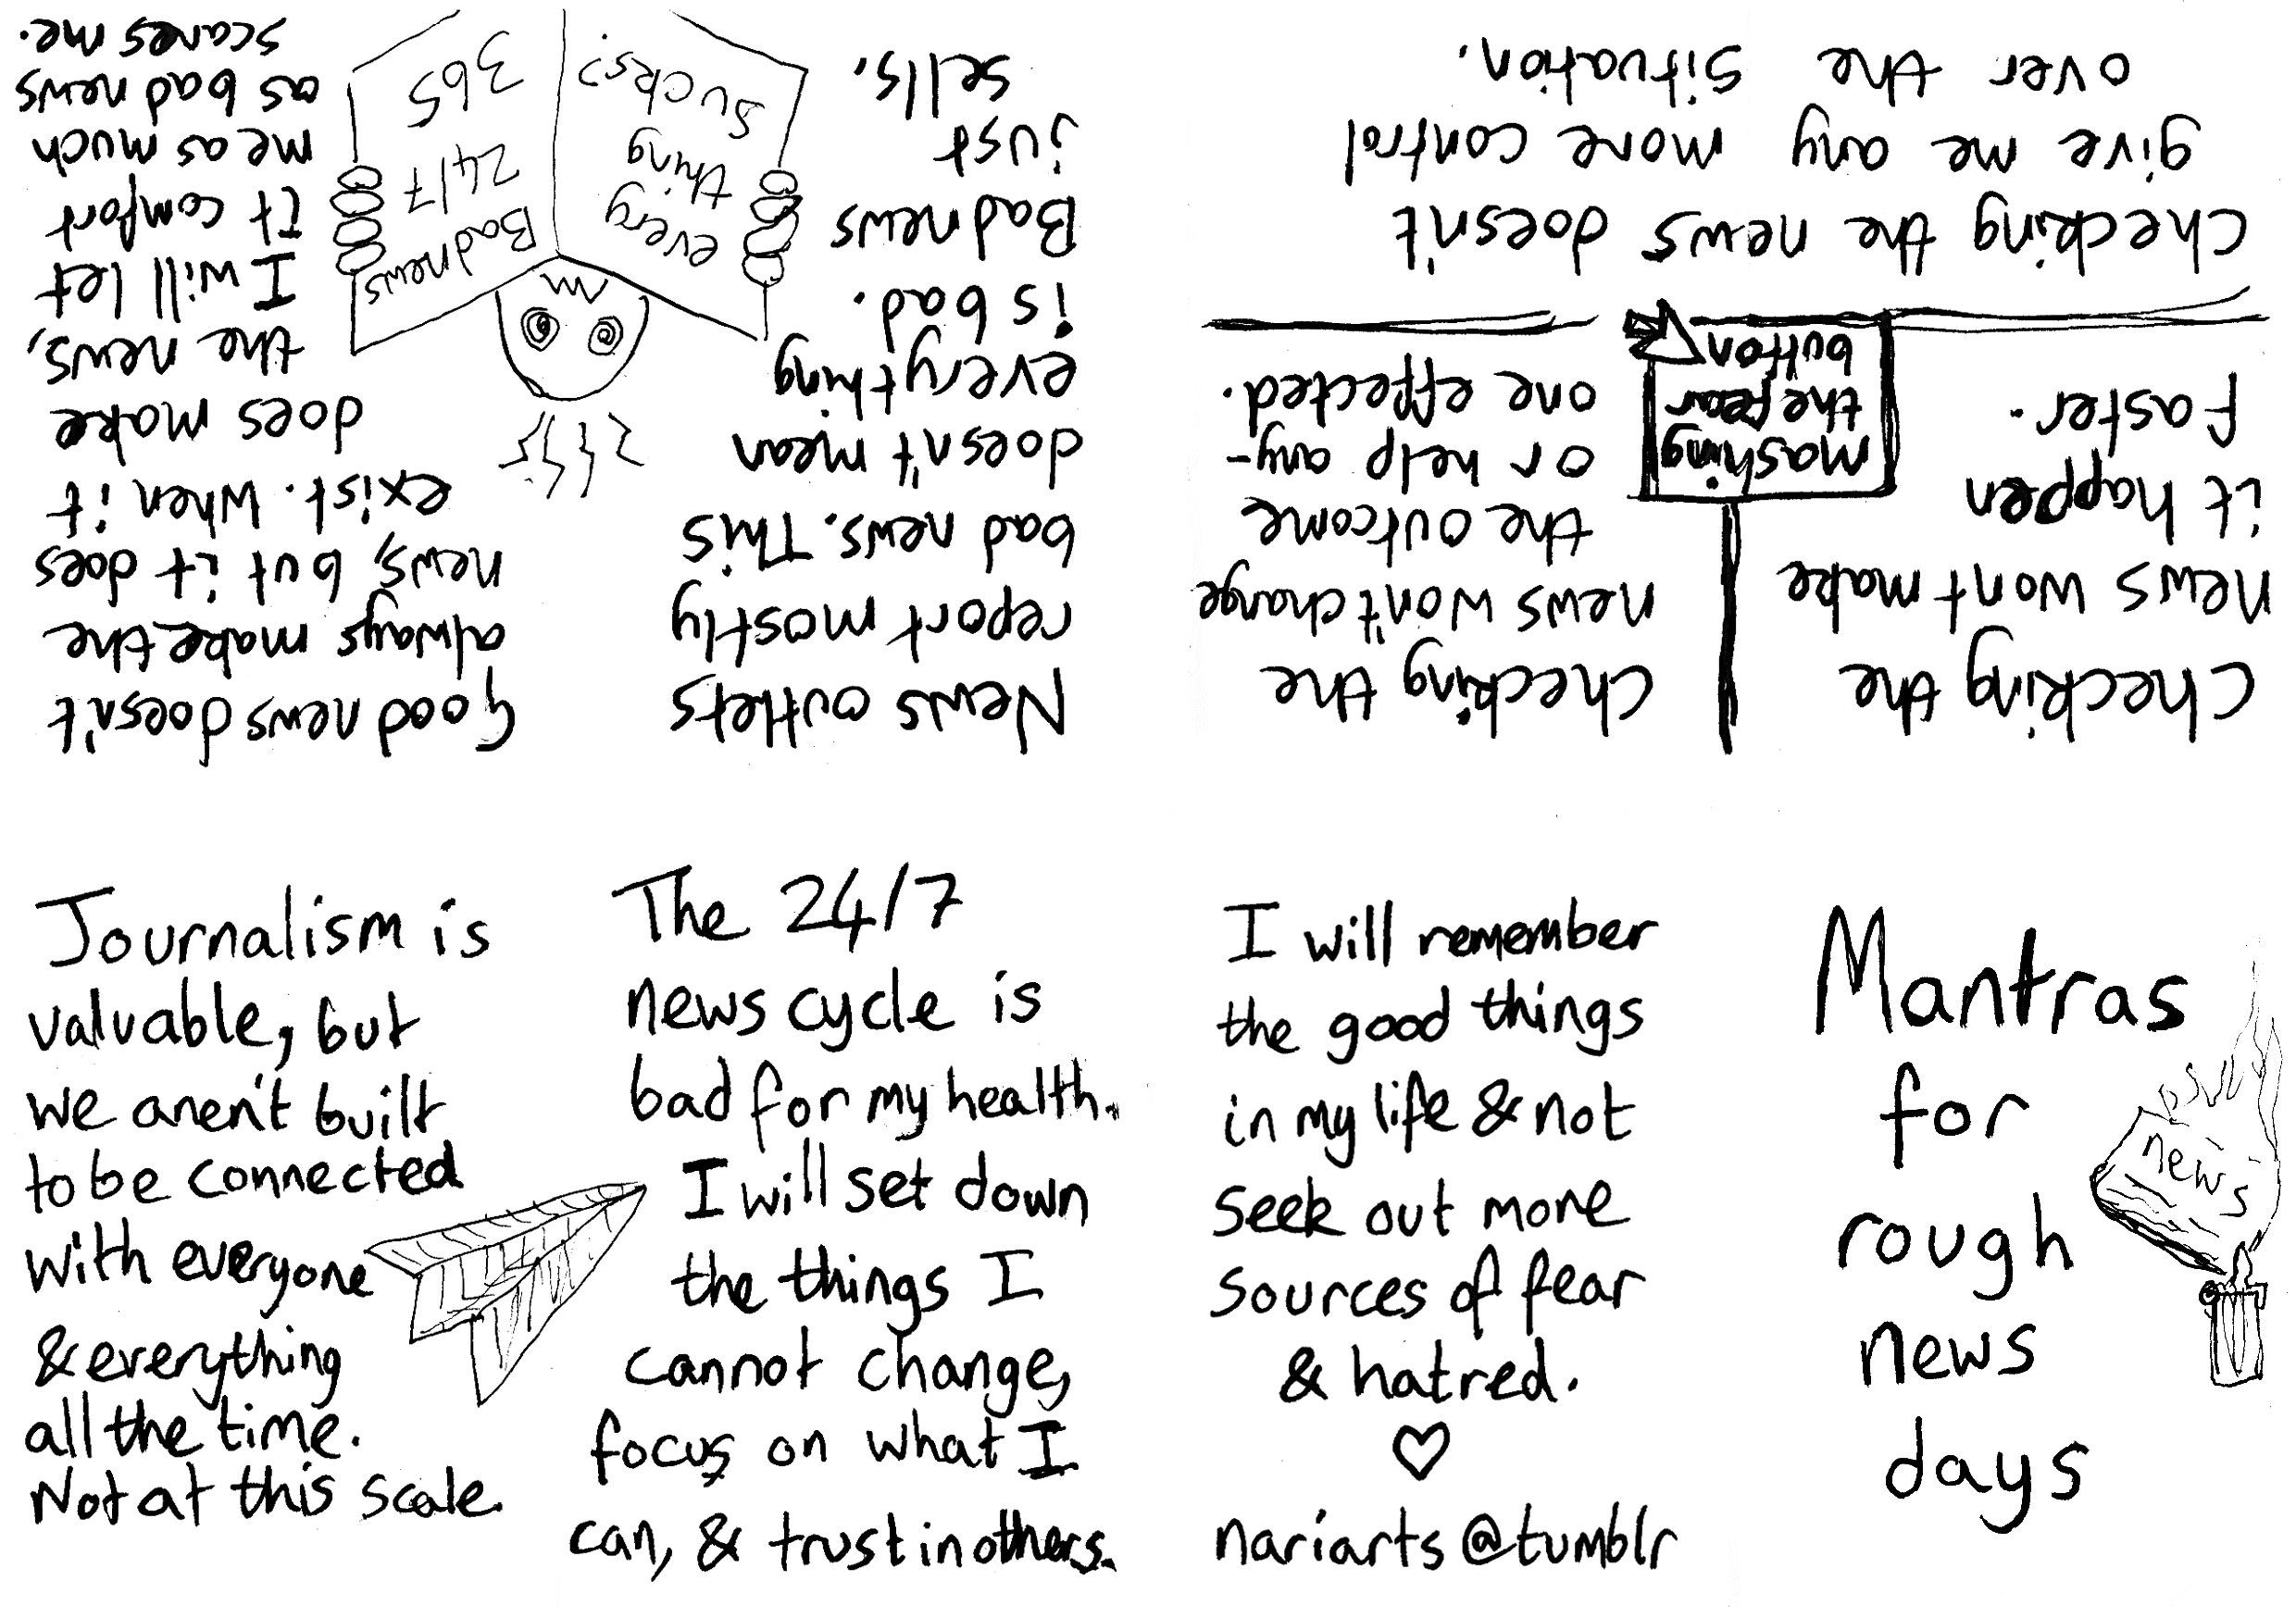 Mantras
for
rough
news
days
news
Checking the
news wont make
it happen
faster.
Checking the
news won't change
the outcome
or help any-
one effected.
mashing
the fear
button
Checking the news doesn't
give me any more control
over the situation.
News outlets
report mostly
bad news. This
doesn't mean
everything
is bad.
Bad news
just
sells.
Bad news
24/7
365
every
thing
sucks?
Good news doesn't
always make the
news, but it does
exist. When it
does make
the news,
I will let
it comfort
me as much
as bad news
scares me.
Journalism is
valuable, but
we aren't built
to be connected
with everyone
& everything
all the time.
Not at this scale.
The 24/7
news cycle is
bad for my health.
I will set down
the things I
cannot change,
focus on what I
can, & trust in others.
I will remember
the good things
in my life & not
seek out more
sources of fear
& hatred.
♡
nariarts@tumblr